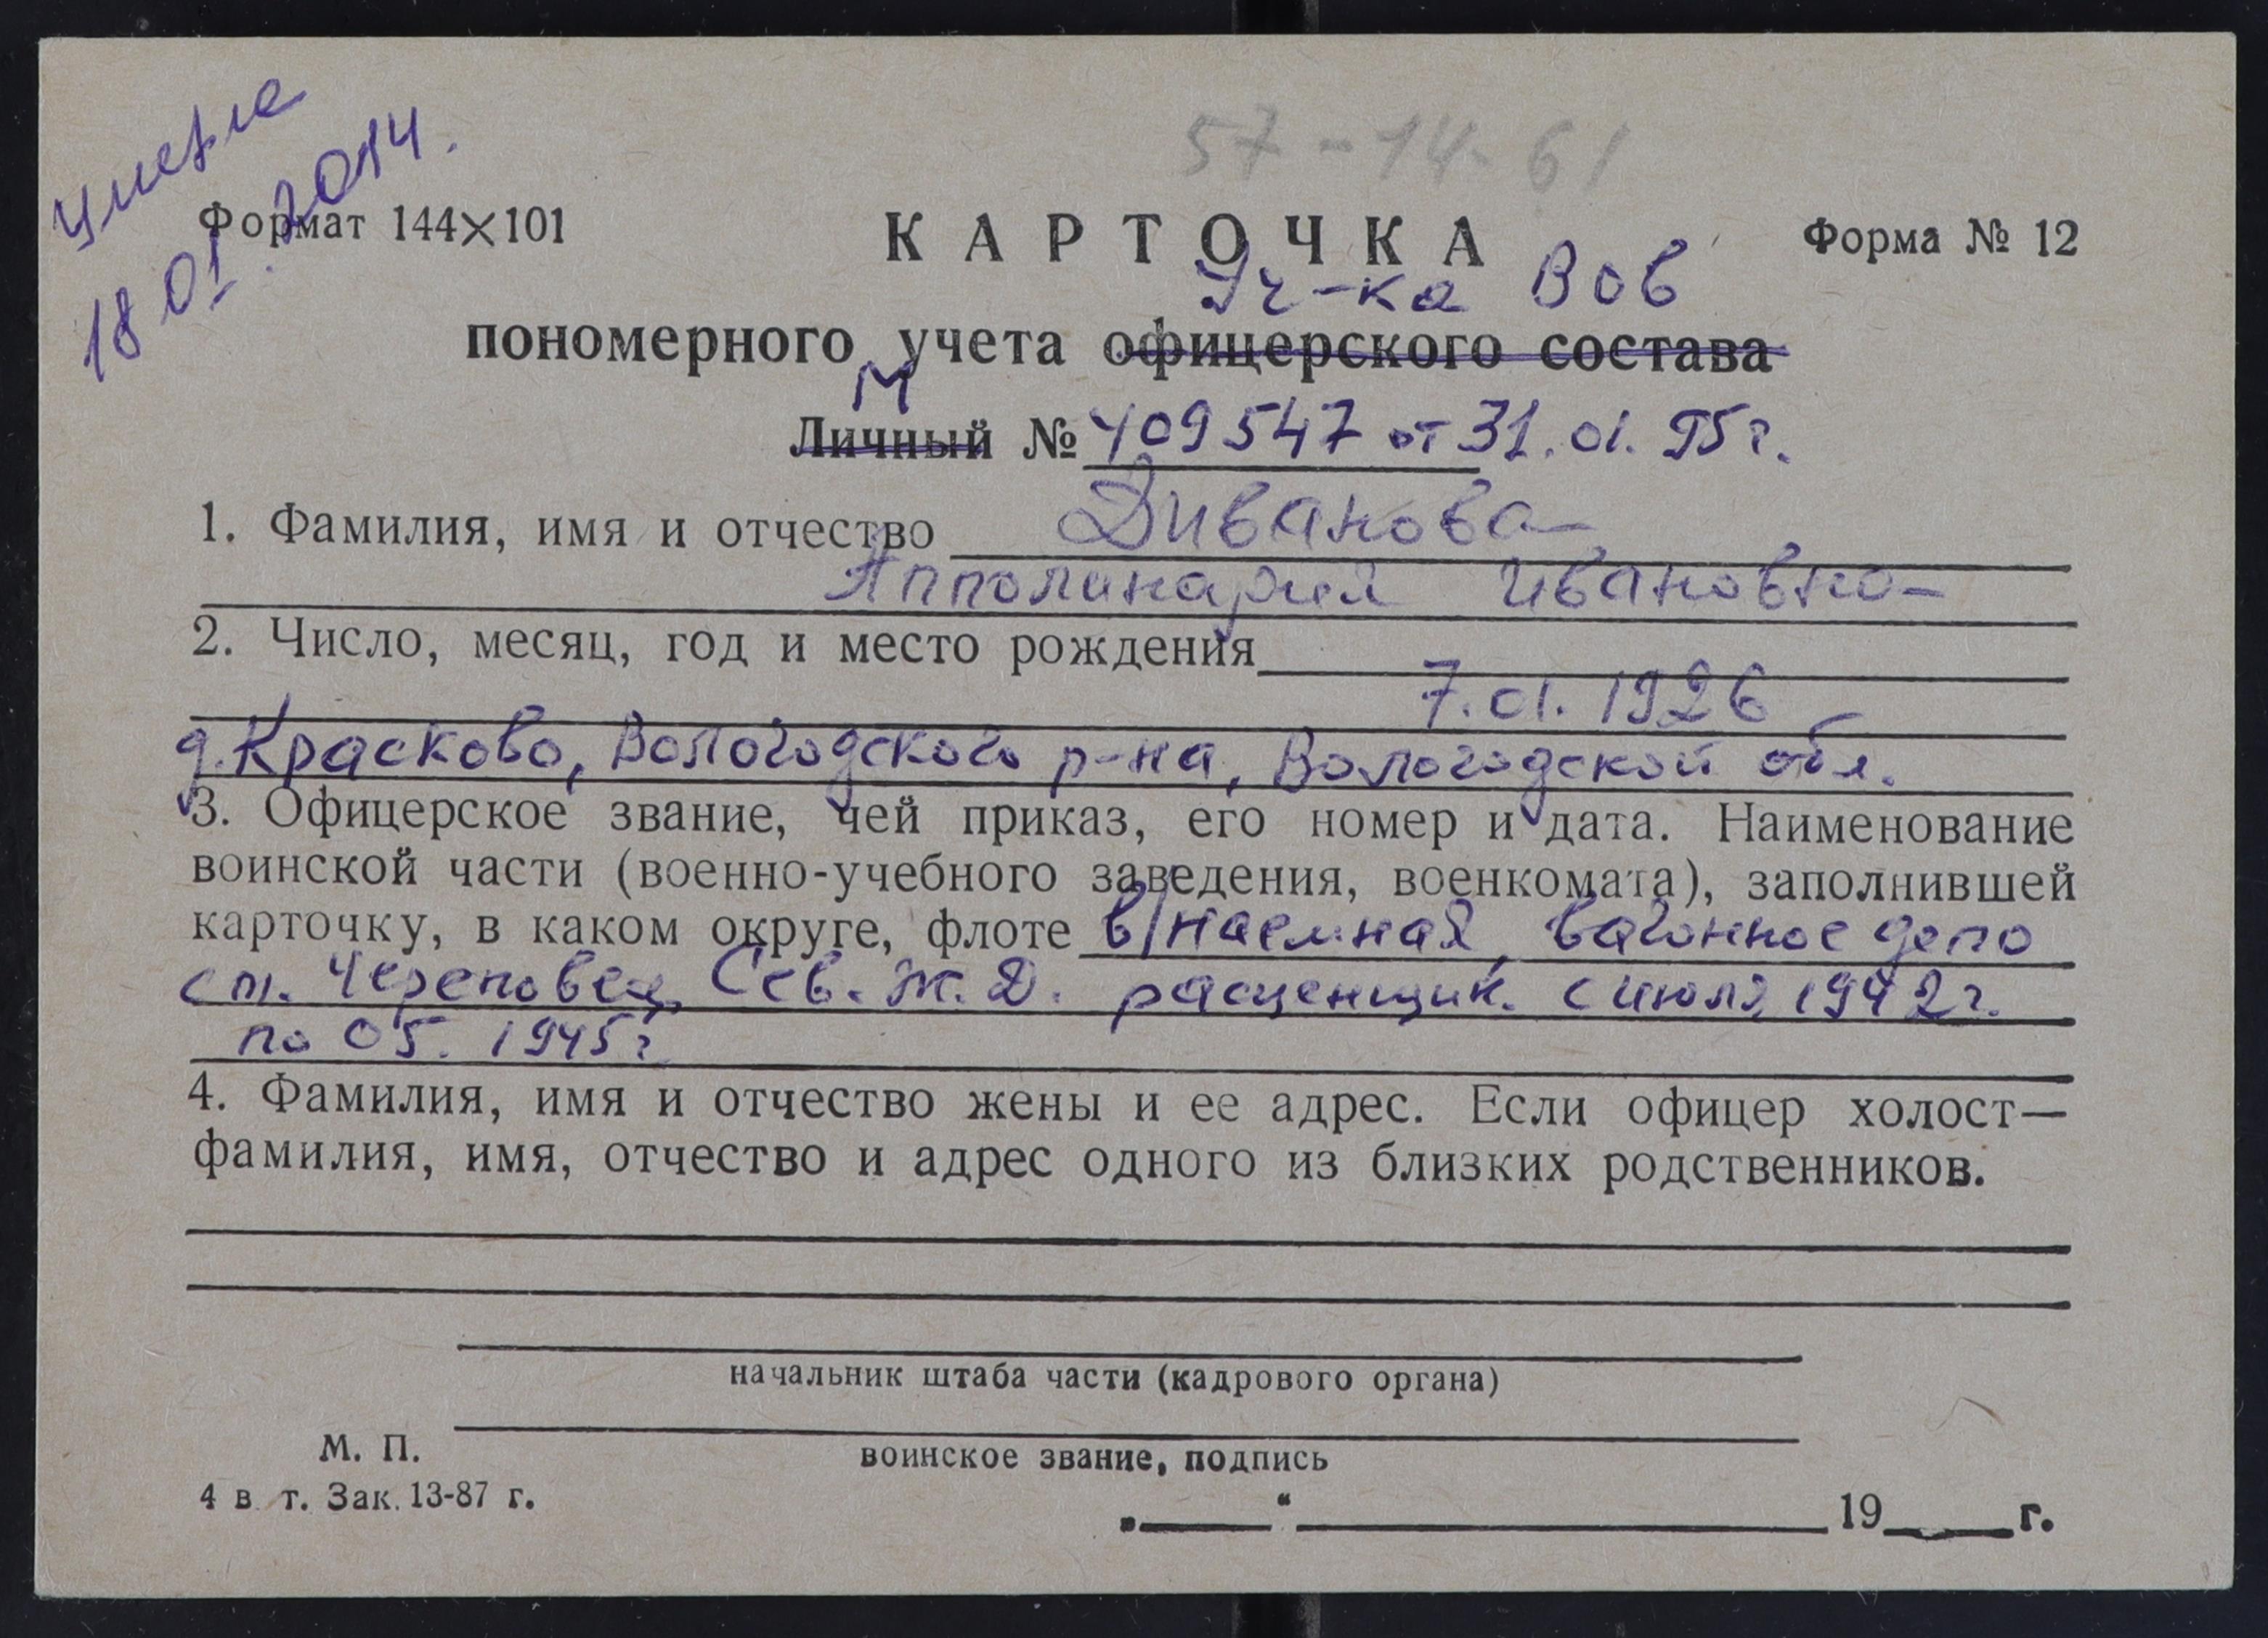 умерла
18 01. 2014.
57-14-61
Формат 144×101
КАРТОЧКА
Форма № 12
Уч-ка ВОВ
пономерного учета офицерского состава
М
Личный № 409547 от 31.01.95г.
1. Фамилия, имя и отчество Диванова
Апполинария Ивановна
2. Число, месяц, год и место рождения
7.01.1926
д. Красково, Вологодского р-на, Вологодской обл.
3. Офицерское звание, чей приказ, его номер и дата. Наименование
воинской части (военно-учебного заведения, военкомата), заполнившей
карточку, в каком округе, флоте в/наемная, вагонное депо
ст. Череповец, Сев. Ж.Д. расценщик. с июля 1942г.
по 05. 1945г
4. Фамилия, имя и отчество жены и ее адрес. Если офицер холост—
фамилия, имя, отчество и адрес одного из близких родственников.
начальник штаба части (кадрового органа)
М. П.
воинское звание, подпись
4 в. т. Зак. 13-87 г.
„ “ 19 г.